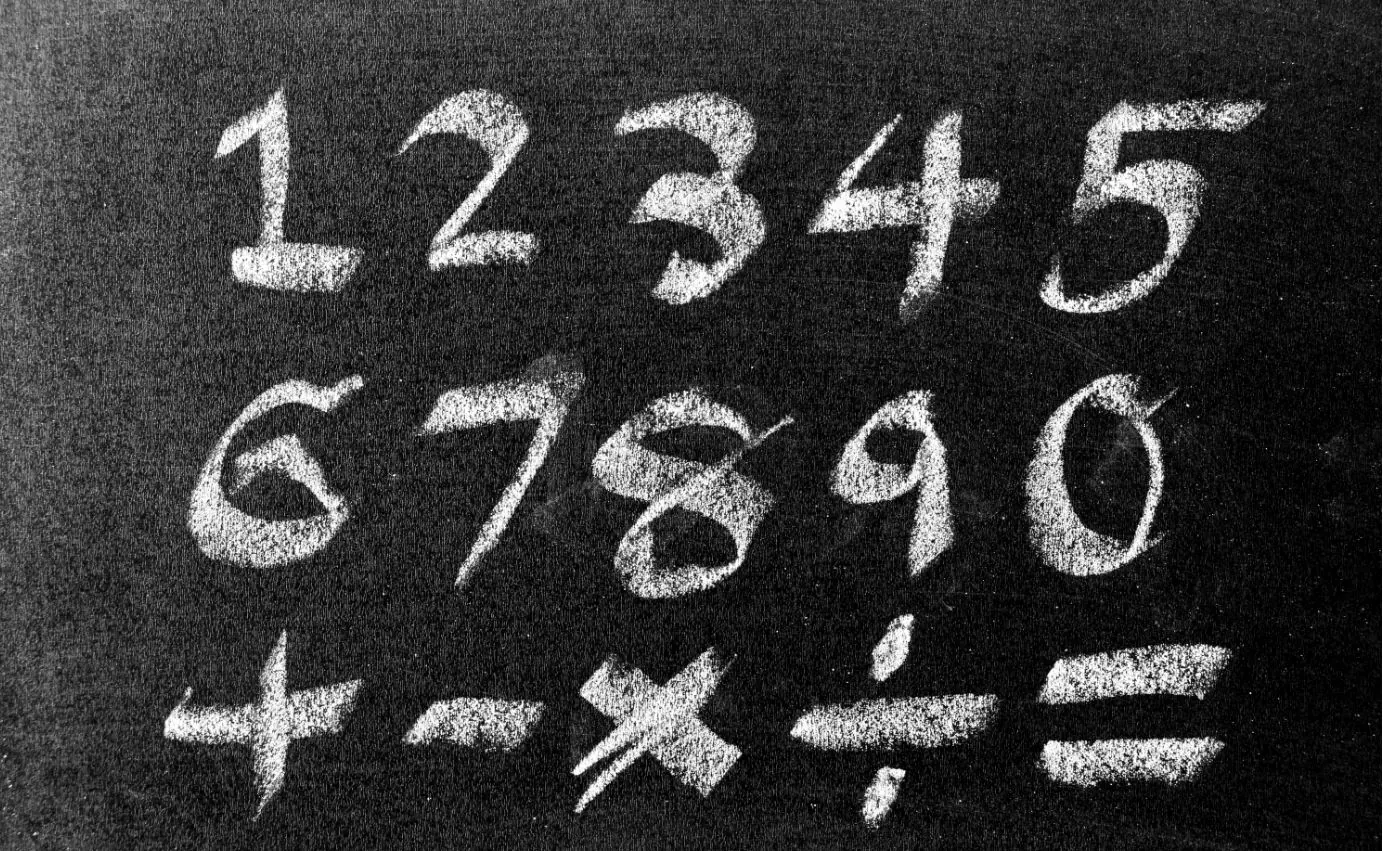 1 2 3 4 5
6 7 8 9 0
+ - × ÷ =